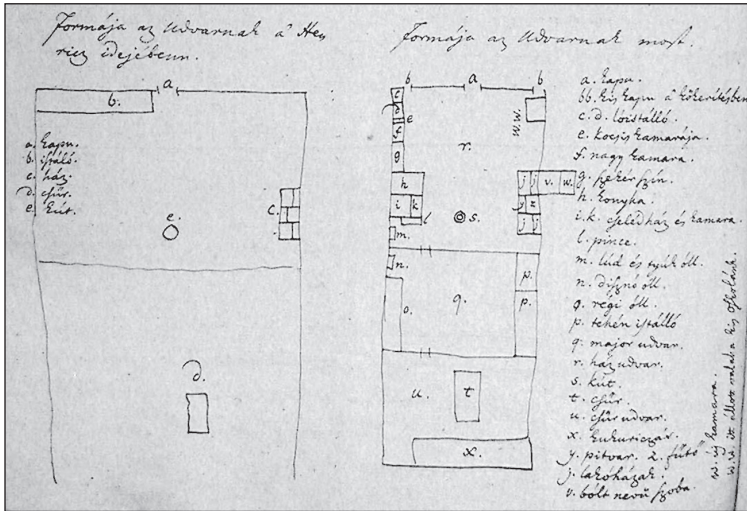 Formája az Udvarnak â Hen
ricz idejébenn.
a
b.
a. kapu.
b. istáló.
c. ház.
d. csűr.
e. kút.
c.
e.
d.
Formája az Udvarnak most.
b
a
b
c
d
e
f
g
w.w.
r.
h
i
k
l
s.
j
j
v.
w.
y
z
j
j
m.
n.
o.
q.
p.
p.
u.
t
x.
a. kapu.
bb. kis kapu â kőkerítésben
c. d. lóistálló.
e. kocsis kamarája.
f. nagy kamara.
g. szekér szín.
h. konyha.
i. k. cselédház és kamara.
l. pince.
m. lúd és tyúk óll.
n. disznó óll.
o. régi óll.
p. tehén istálló
q. major udvar.
r. ház udvar.
s. kút.
t. csűr.
u. csűr udvar.
x. kukuriczár.
y. pitvar. z. fűtő
j. lakóházak.
v. bólt nevű szoba.
w. új kamara.
w.w. itt állott valaha kis oskolánk.